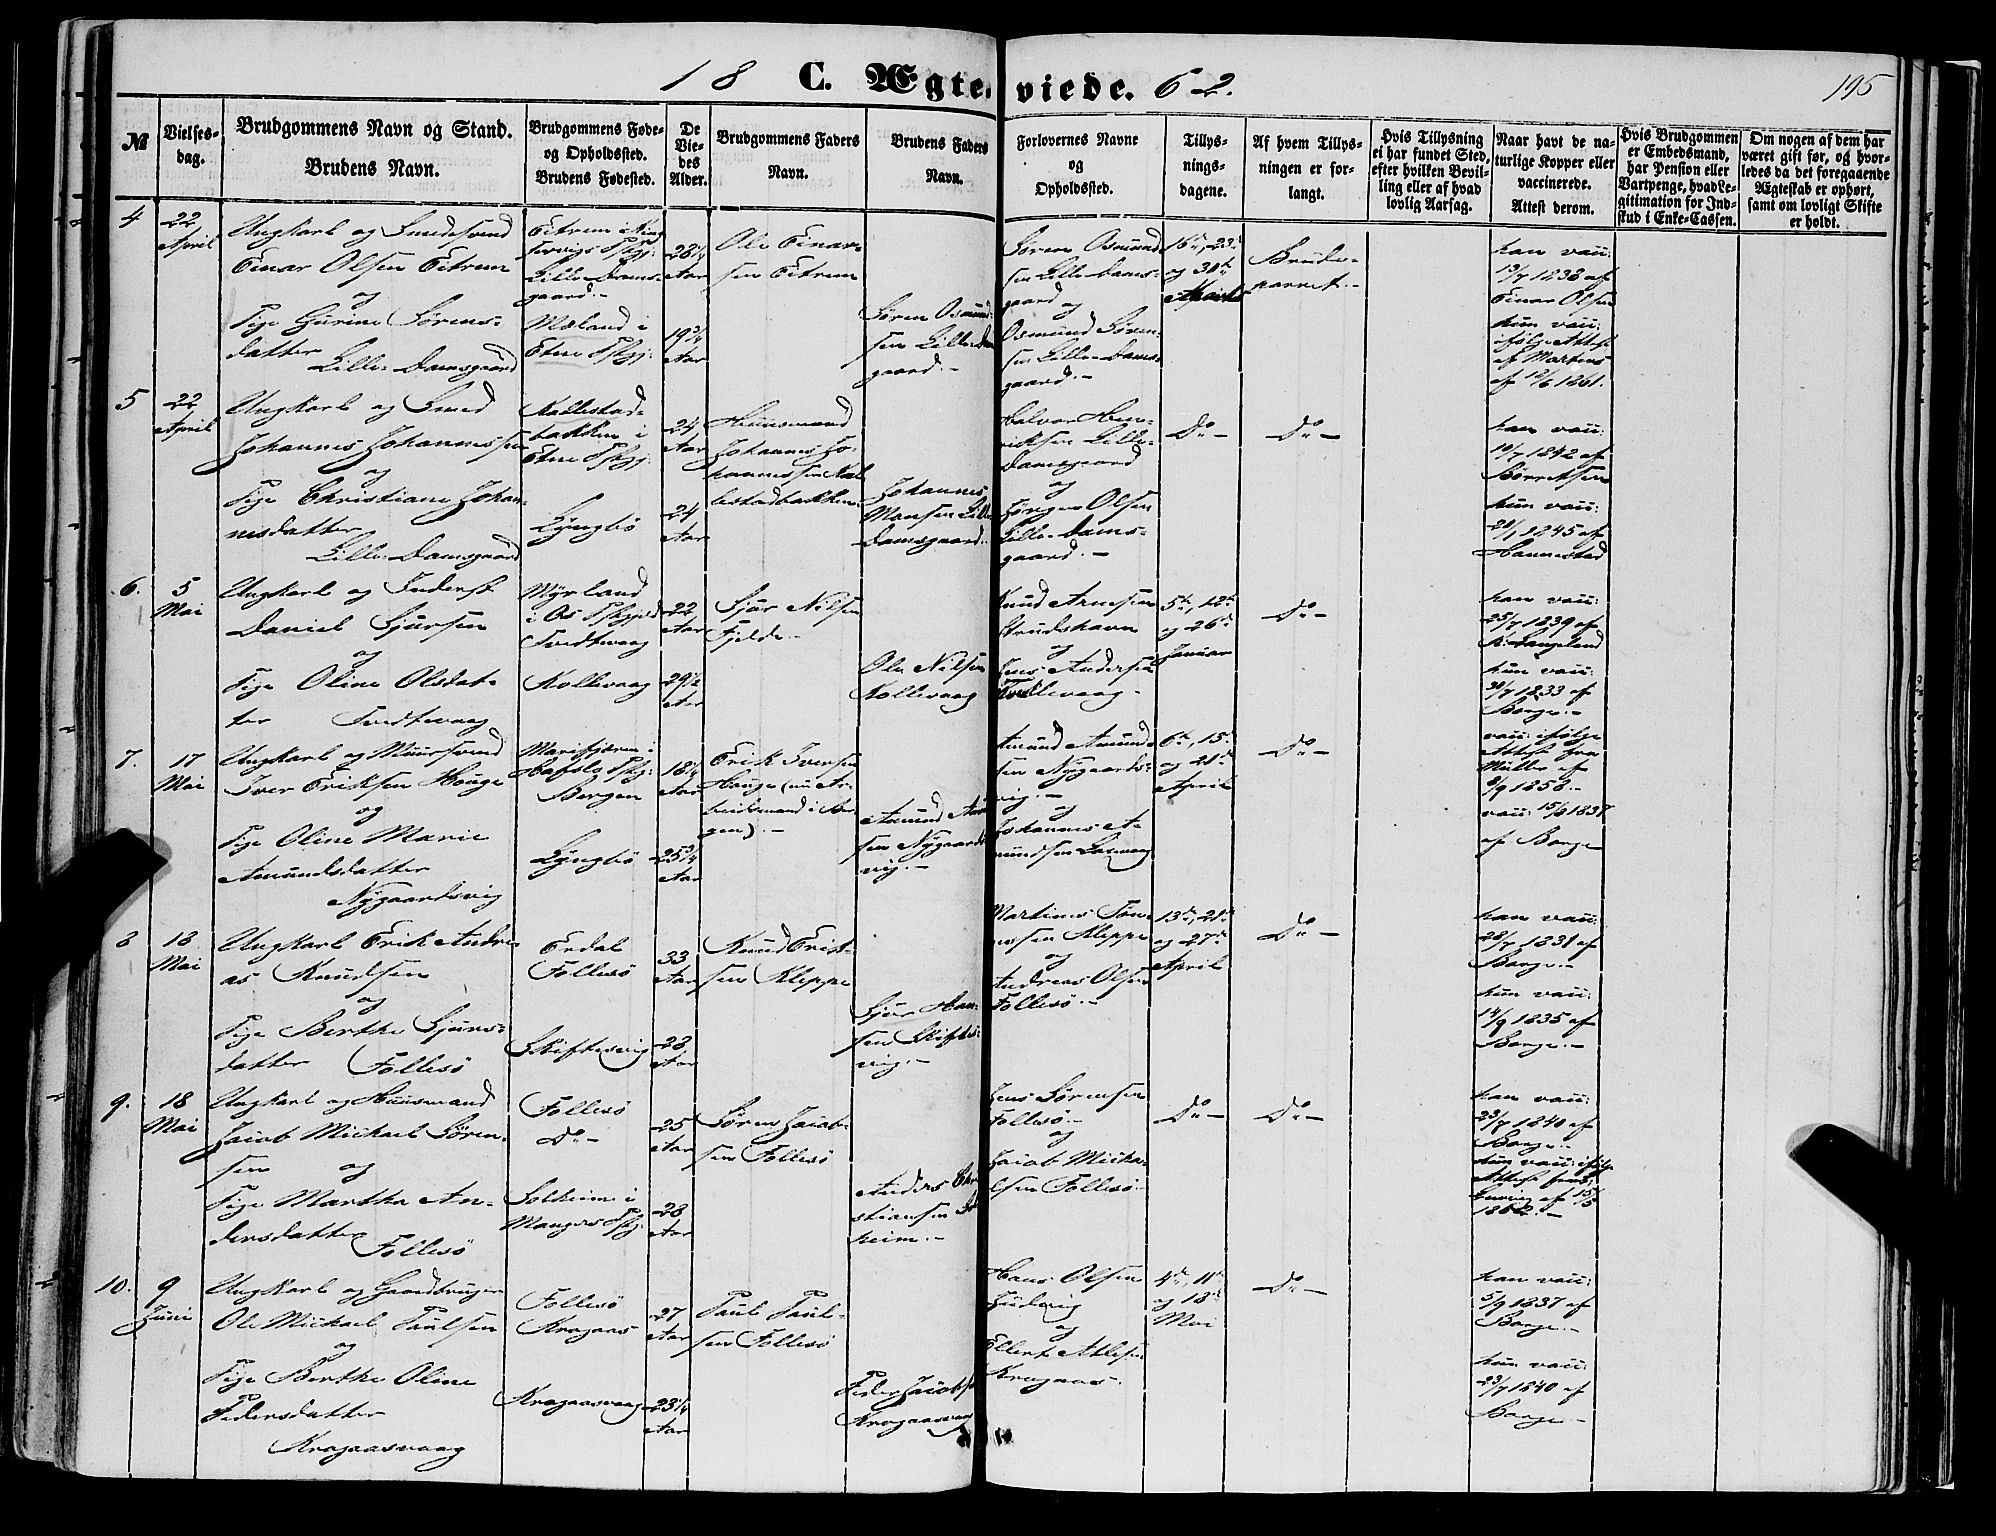 18 C. Ægteviede. 62.
195
№
Vielsesdag.
Brudgommens Navn og Stand.
Brudens Navn.
Brudgommens Føde-
og Opholdssted.
Brudens Fødested.
De
Vie-
des
Alder.
Brudgommens Faders
Navn.
Brudens Faders
Navn.
Forlovernes Navne
og
Opholdssted.
Tillys-
nings-
dagene.
Af hvem Tillys-
ningen er for-
langt.
Hvis Tillysning
ei har fundet Sted,
efter hvilken Bevil-
ling eller af hvad
lovlig Aarsag.
Naar havt de na-
turlige Kopper eller
vaccinerede.
Attest derom.
Hvis Brudgommen
er Embedsmand,
har Pension eller
Vartpenge, hvad Le-
gitimation for Ind-
skud i Enke-Cassen.
Om nogen af dem har
været gift før, og hvor-
ledes da det foregaaende
Ægteskab er ophørt,
samt om lovligt Skifte
er holdt.
4
22
April
Ungkarl og Smedesvend
Einar Olsen Eitrem
og
Pige Gurine Sørens-
datter
Lille Damsgaard
Lille Dams-
gaard.-
Mæland i
Etne Pstgj:
28¼
Aar
19¾
Aar
Ole Einar-
sen Eitrem
Søren Osmund-
sen Lille Dam
gaard.-
Søren Osmund-
sen Lille Dams-
gaard
og
Osmund Søren-
sen Lille Dams-
gaard.-
og 30te
Brude-
parret.-
han vacc:
13/7 1838 af
Einar Olsen
hun vacc:
ifølge Attest
af Martens
af 12/6 1861.
5
22
April
Ungkarl og Smed
Johannes Johannessen
og
Pige Christiane Johan-
nesdatter
Lille Damsgaard
bakken i
Etne Pstgj:
Lyngbö
24
Aar
24
Aar
Huusmand
Johannes Jo-
hannessen
Johannes
Monsen Lille
Damsgaard.
Halvor Hen-
riksen Lille
Damsgaard
og
Jørgen Olsen
Lille Dams-
gaard.-
Do -
Do -
han vacc:
19/7 1842 af
hun vacc:
21/1 1845 af
Hannestad
6.
5
Mai
Ungkarl og Inderst
Daniel Sjursen
og
Pige Oline Olsdat-
ter Tvedtevaag
Myrland
i Os Pstgjeld
Tvedtevaag
Kollevaag
22
Aar
29½
Aar
Sjur Nilsen
Fjelde.-
Ole Nilsen
Kollevaag
Knud Arnesen
Strudshavn
og
Jens Andersen
5te, 12te
og 26de
Januar
Do -
han vacc:
25/7 1839 af
K. Langeland
hun vacc:
30/7 1833 af
Borge.-
7.
17
Mai
Ungkarl og Muursvend
Iver Eriksen Houge
og
Pige Oline Marie
Amundsdatter
Nygaardsvig
Marifjæren i
Hafslo Pstgj:
Bergen
Lyngbö
18¼
Aar
25¾
Aar
Erik Iversen
Houge (nu Ar-
beidsmand i Ber-
gen).-
Amund
sen Nygaards
vig.-
Amund Amund-
sen Nygaards-
vig.-
og
Johannes A-
mundsen
6te, 15de
og 21de
April
Do -
vacc: ifølge
Attest fra
Müller af
8/9 1858.-
vacc: 15/9 1837
af Borge
8
18
Mai
Ungkarl Erik Andre-
as Knudsen
og
Pige Berthe Sjurs-
datter Follesö
Erdal
Follesö
Skiftesvig
33
Aar
28
Aar
Knud Erik-
sen Kleppe
Sjur Han-
sen Skiftes-
vig.-
Martinus
Kleppe
og
Andreas Olsen
Follesö.-
13de, 21de
og 27de
April
Do -
han vacc:
28/7 1831 af
Borge.-
hun vacc:
14/9 1835 af
Borge.-
9.
18
Mai
Ungkarl og Huusmand
Jacob Mickael Sören-
sen og
Pige Martha An-
dersdatter
Follesö
Follesö
Do -
Solheim i
Mangers Pstgj:
25
Aar
28
Aar
Sören Jacob-
sen Follesö
Anders Chri
stiansen So
heim.-
Jens Sörensen
Follesö.-
og
Jacob Micka-
elsen Follesö.-
Do -
Do -
han vacc:
23/7 1840 af
Borge.-
hun vacc: ifølge
Attest fra
af 15/5
1862.-
10.
9
Juni
Ungkarl og Gaardbruger
Ole Mickael Paulsen
og
Pige Berthe Oline
Pedersdatter
Kragaasvaag
Follesö
Kragaas
Kragaasvaag
27
Aar
23¼
Aar
Paul Paul-
sen Follesö
Peder Jacobs
Kragaasvaag
Hans Olsen
og
Ellert Atlesen
Kragaas.
4de, 11te
og 18de
Mai
Do -
han vacc:
5/9 1837 af
Borge.-
hun vacc:
23/7 1840 af
Borge.-